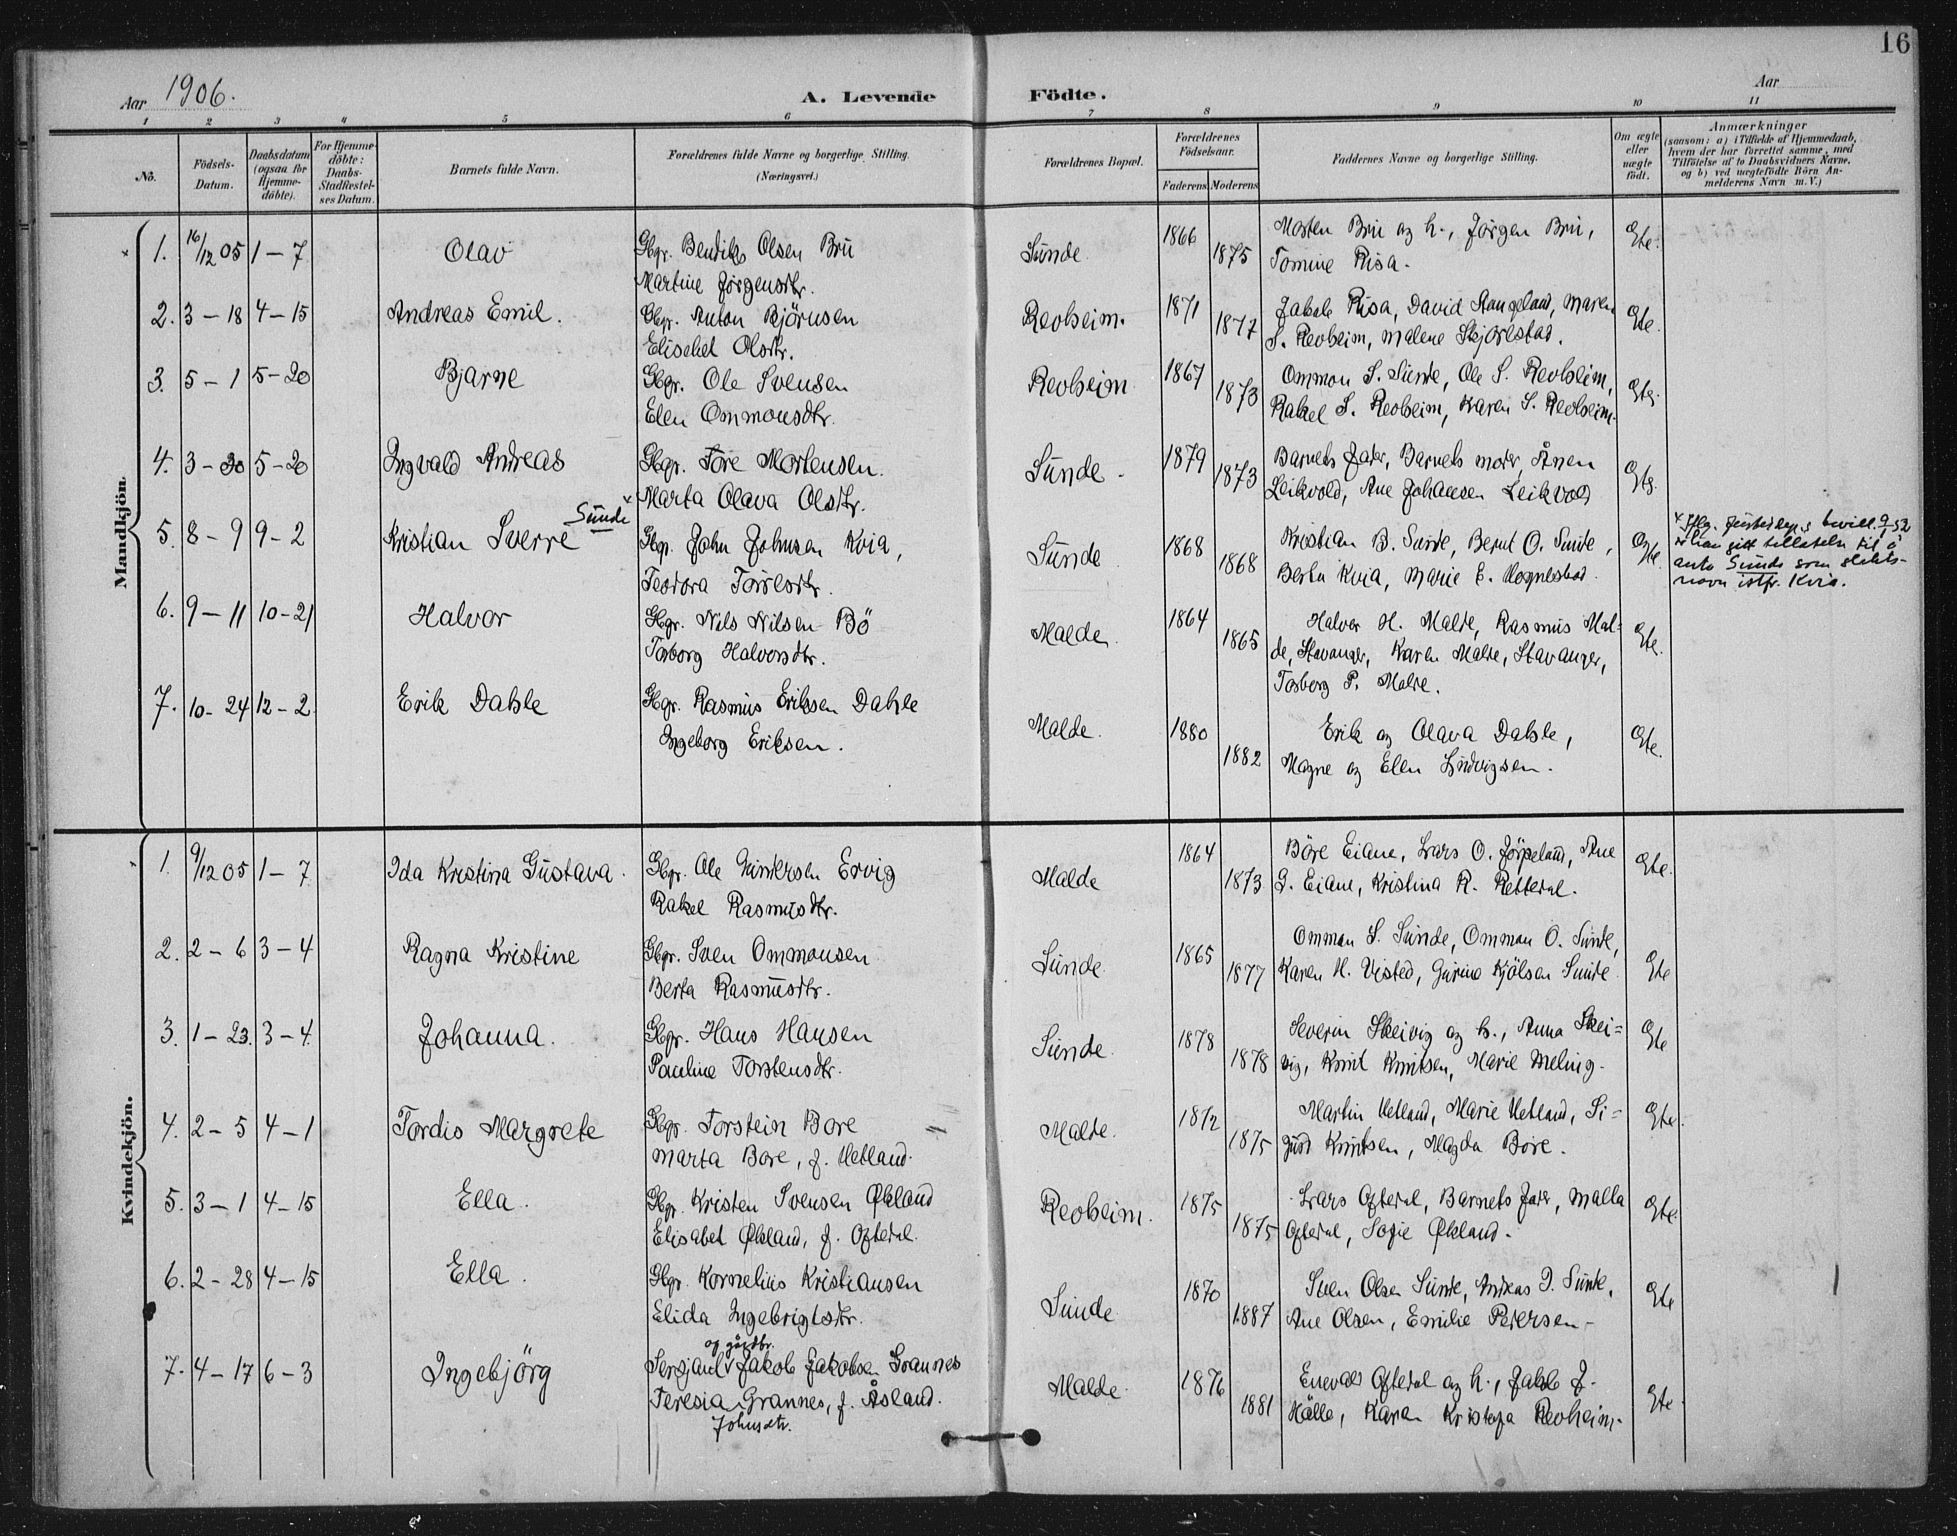 16
Aar 1906.
A. Levende Födte.
Aar
1 2 3 4 5 6 7 8 9 10 11
No.
Födsels-Datum.
Daabsdatum (ogsaa for Hjemmedöbte).
For Hjemmedöbte: Daabs-Stadfæstelses Datum.
Barnets fulde Navn.
Forældrenes fulde Navne og borgerlige Stilling. (Næringsvei.)
Forældrenes Bopæl.
Forældrenes Födselsaar.
Faderens Moderens
Faddernes Navne og borgerlige Stilling.
Om ægte eller uægte födt.
Anmærkninger
(saasom: a) i Tilfælde af Hjemmedaab, hvem der har forrettet samme, med Tilföielse af to Daabsvidners Navne, og b) ved uægtefödte Börn Anmelderens Navn m. V.)
Mandkjön.
1. 16/12 05 1 - 7 Olav Gbr. Bendiks Olsen Bru Sunde 1866 Morten Bru og h., Jörgen Bru, Ete.
Martine Jörgensdtr. 1875 Tomine Risa.
2. 3 - 18 4 - 15 Andreas Emil. Gbr. Anton Björnsen Revheim. 1871 Jakob Risa, David Stangeland, Maren Ete.
Elisabet Olsdtr. 1877 S. Revheim, Malene Skjörestad.
3. 5 - 1 5 - 20 Bjarne Gbr. Ole Svensen Revheim 1867 Ommon S. Sunde, Ole S. Revheim, Ete.
Elen Ommonsdtr. 1873 Rakel S. Revheim, Karen S. Revheim.
4. 3 - 30 5 - 20 Ingvald Andreas Gbr. Tore Mortensen. Sunde. 1879 Barnets fader, Barnets moder, Ånen Ete.
Marta Olava Olsdtr. 1873 Leikvold, Ane Johansen Leikvold
5. 8 - 9 9 - 2 Kristian Sverre Sunde x Gbr. John Johnsen Kvia, Sunde 1868 Kristian B. Sunde, Bernt O. Sunde, Ete.
Teodora Torresdtr. 1868 Berta Kvia, Marie E. Hognestad.
x Iflg. Justisdep.s bevill. 9/5 52
er han gitt tillatelse til å
anta Sunde som slekts-
navn istf. Kvia.
6. 9 - 11 10 - 21 Halvor Gbr. Nils Nilsen Bö Malde. 1864 Halvor H. Malde, Rasmus Mal= Ete.
Torborg Halvorsdtr. 1865 de, Stavanger, Karen Malde, Stavanger,
Torborg P. Malde.
7. 10 - 24 12 - 2 Erik Dahle Gbr. Rasmus Eriksen Dahle Malde. 1880 Erik og Olava Dahle, Ete.
Ingeborg Eriksen. 1882 Magne og Elen Ludvigsen.
Kvindekjön.
1. 9/12 05 1 - 7 Ida Kristina Gustava. Gbr. Ole Gundersen Ervig Malde 1864 Böre Eiane, Lars O. Jörpeland, Ane Ete.
Rakel Rasmusdtr. 1873 G. Eiane, Kristina R. Rettedal.
2. 2 - 6 3 - 4 Ragna Kristine Gbr. Sven Ommonsen Sunde. 1865 Ommon S. Sunde, Ommon O. Sunde, Ete
Berta Rasmusdtr. 1877 Karen H. Visted, Gurine Kjölsen Sunde.
3. 1 - 23. 3 - 4. Johanna. Gbr. Hans Hansen Sunde. 1878 Severin Skeivig og h., Anna Skei= Ete
Pauline Torstensdtr. 1878 vig, Knut Knutsen, Marie Meling.
4. 2 - 5 4 - 1 Tordis Margrete Gbr. Torstein Bore Malde. 1872 Martin Hetland, Marie Hetland, Si= Ete.
Marta Bore, f. Hetland. 1875 gurd Knutsen, Magda Bore.
5. 3 - 1 4 - 15 Ella. Gbr. Kristen Svensen Økland Revheim. 1875 Lars Oftedal, Barnets fader, Malla Ete.
Elisabet Økland, f. Oftedal. 1875 Oftedal, Sofie Økland.
6. 2 - 28 4 - 15 Ella. Gbr. Kornelius Kristiansen Sunde. 1870 Sven Olsen Sunde, Andreas I. Sunde, Ete
Elida Ingebrigtsdtr. 1887 Ane Olsen, Emilie Petersen.
7. 4 - 17 6 - 3 Ingebjörg Sersjant og gårdbr. Jakob Jakobsen Grannes Malde. 1876 Enevald Oftedal og h., Jakob J. Ete.
Teresia Johnsdtr. Grannes, f. Åsland. 1881 Hålle, Karen Kristofa Revheim.